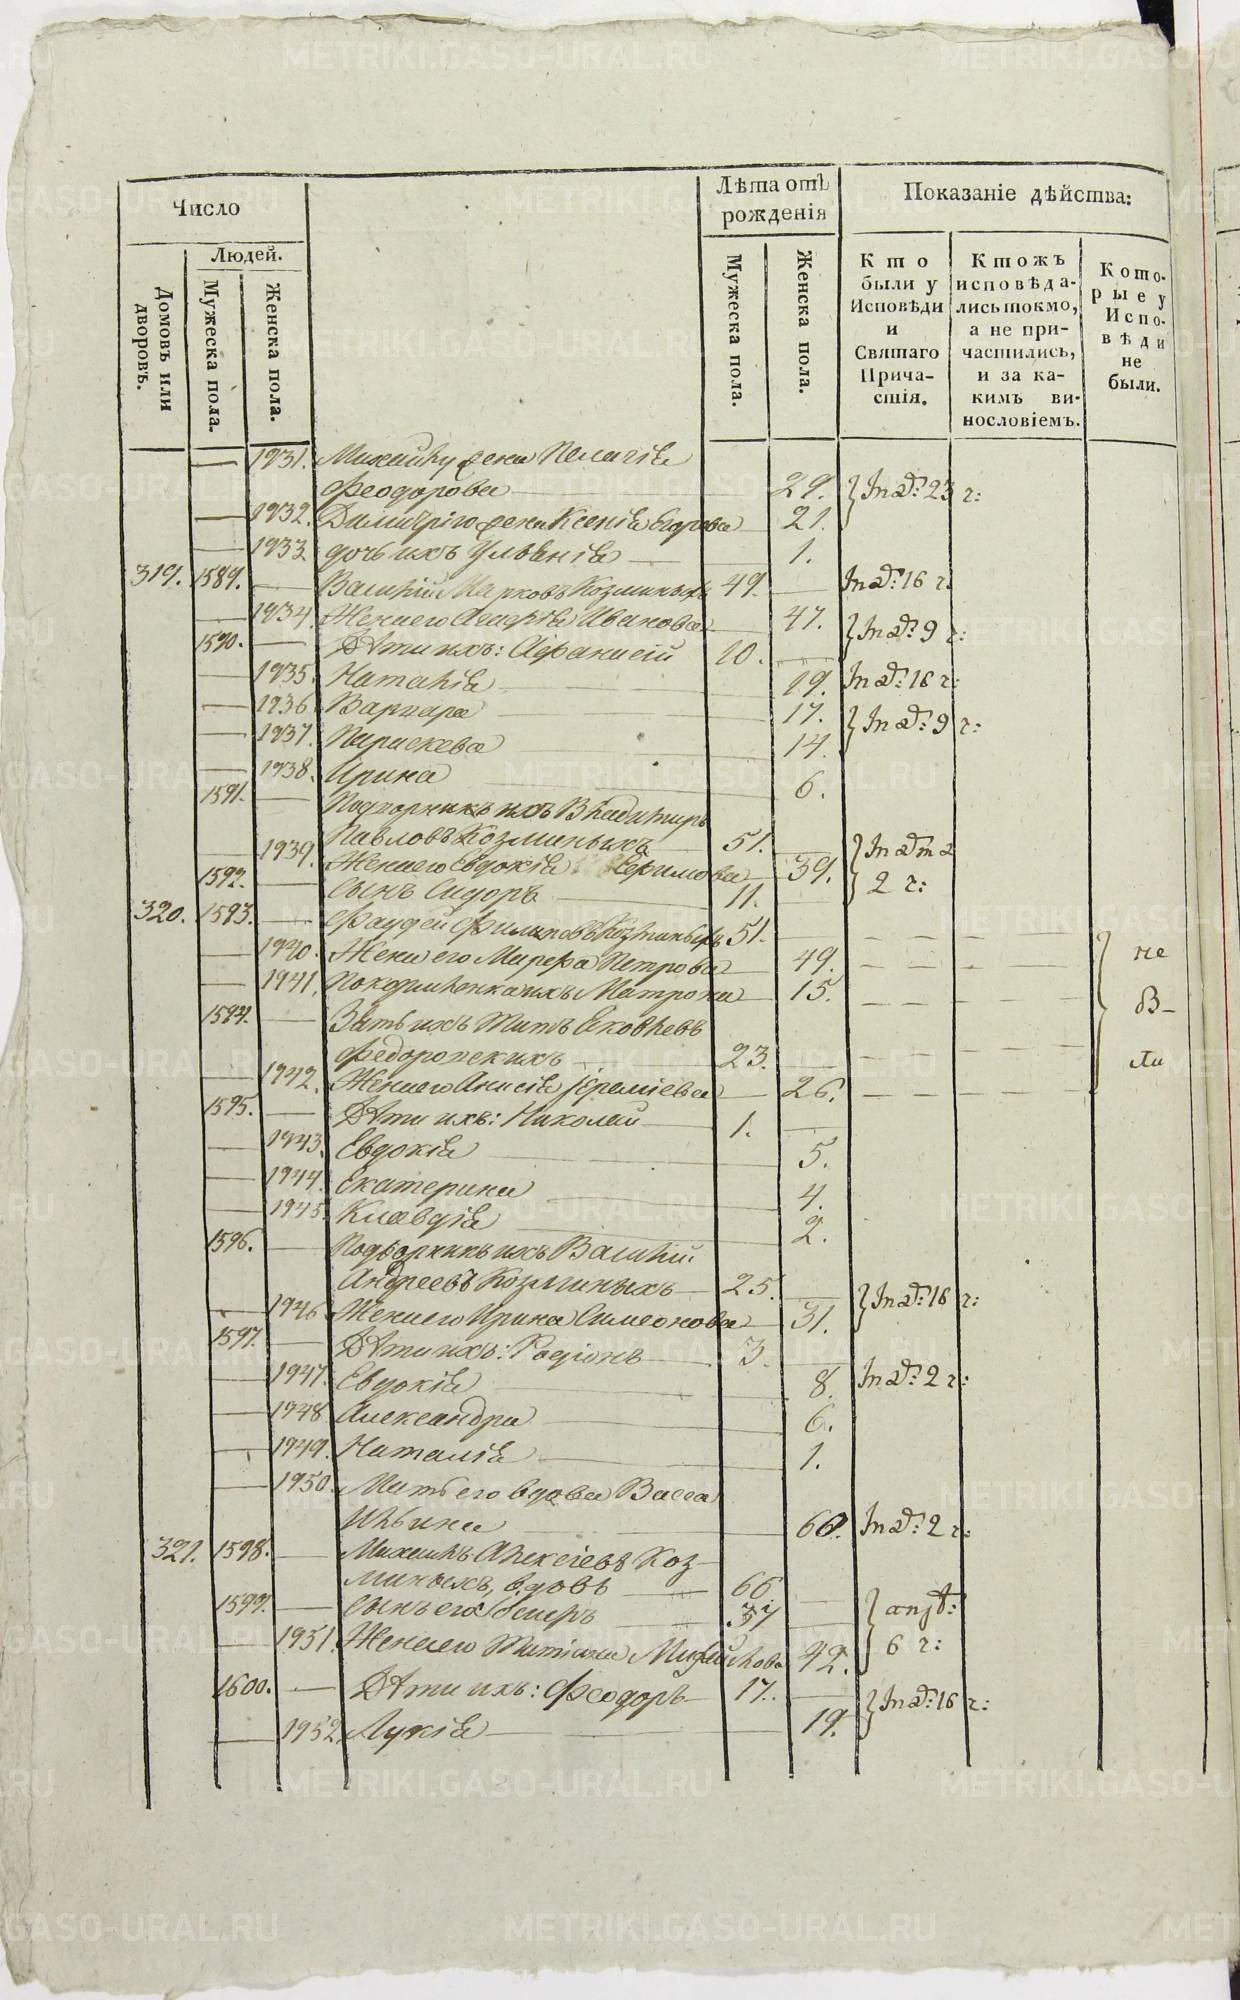 Число
Лѣта отъ рожденія
Показаніе дѣйства:
Людей.
Домовъ или дворовъ.
Мужеска пола.
Женска пола.
Мужеска пола.
Женска пола.
Кто были у Исповѣди и Святаго Прича- стія.
Ктожъ исповѣда- лись токмо, а не при- частились, и за ка- кимъ ви- нословіемъ.
Кото- рые у Испо- вѣди не были.
1931. Михайлы жена Пелагія
Феодорова 29. 23 ч:
1932. Димитрія жена Ксенія Егорова 21.
1933 дочь ихъ Уліанія 1.
319. 1589. Василій Марковъ Козминыхъ 49. 16 ч.
1934. Жена его Агафія Иванова 47. 9 ч:
1590. Дѣти ихъ: Афанасій 10.
1935. Наталія 19. 16 ч:
1936 Варвара 17. 9 ч:
1937. Параскева 14.
1938. Ирина 6.
1591. Подворникъ ихъ Владимиръ
Павловъ Козминыхъ 51.
1939. Жена его Евдокія 39. 2 ч:
1592. Сынъ Сидоръ 11.
320. 1593. Фаддей Филиповъ Козминыхъ 51.
1940. Жена его Марфа Петрова 49. не
1941. Покормленка ихъ Матрона 15. бы-
1594. Зять ихъ Титъ Яковлевъ
23. ли
1942. Жена его Анисія Іереміева 26.
1595. Дѣти ихъ: Николай 1.
1943. Евдокія 5.
1944. Екатерина 4.
1945. Клавдія 2.
1596. Подворникъ ихъ Василій
Андреевъ Козминыхъ 25. 16 ч:
1946 Жена его Ирина Симеонова 31.
1597. Дѣти ихъ: Родіонъ 3.
1947. Евдокія 8. 2 ч:
1948 Александра 6.
1949. Наталія 1.
1950. Мать его вдова Васса
Ильина 60. 2 ч:
321. 1598. Михаилъ Алексіевъ Коз-
миныхъ, вдовъ 66
1599. Сынъ его 37
1951. Жена его Татіана Михайлова 42. 6 ч:
1600. Дѣти ихъ: Феодоръ 17. 16 ч:
1952. Лукія 19.
METRIKI.GASO-URAL.RU